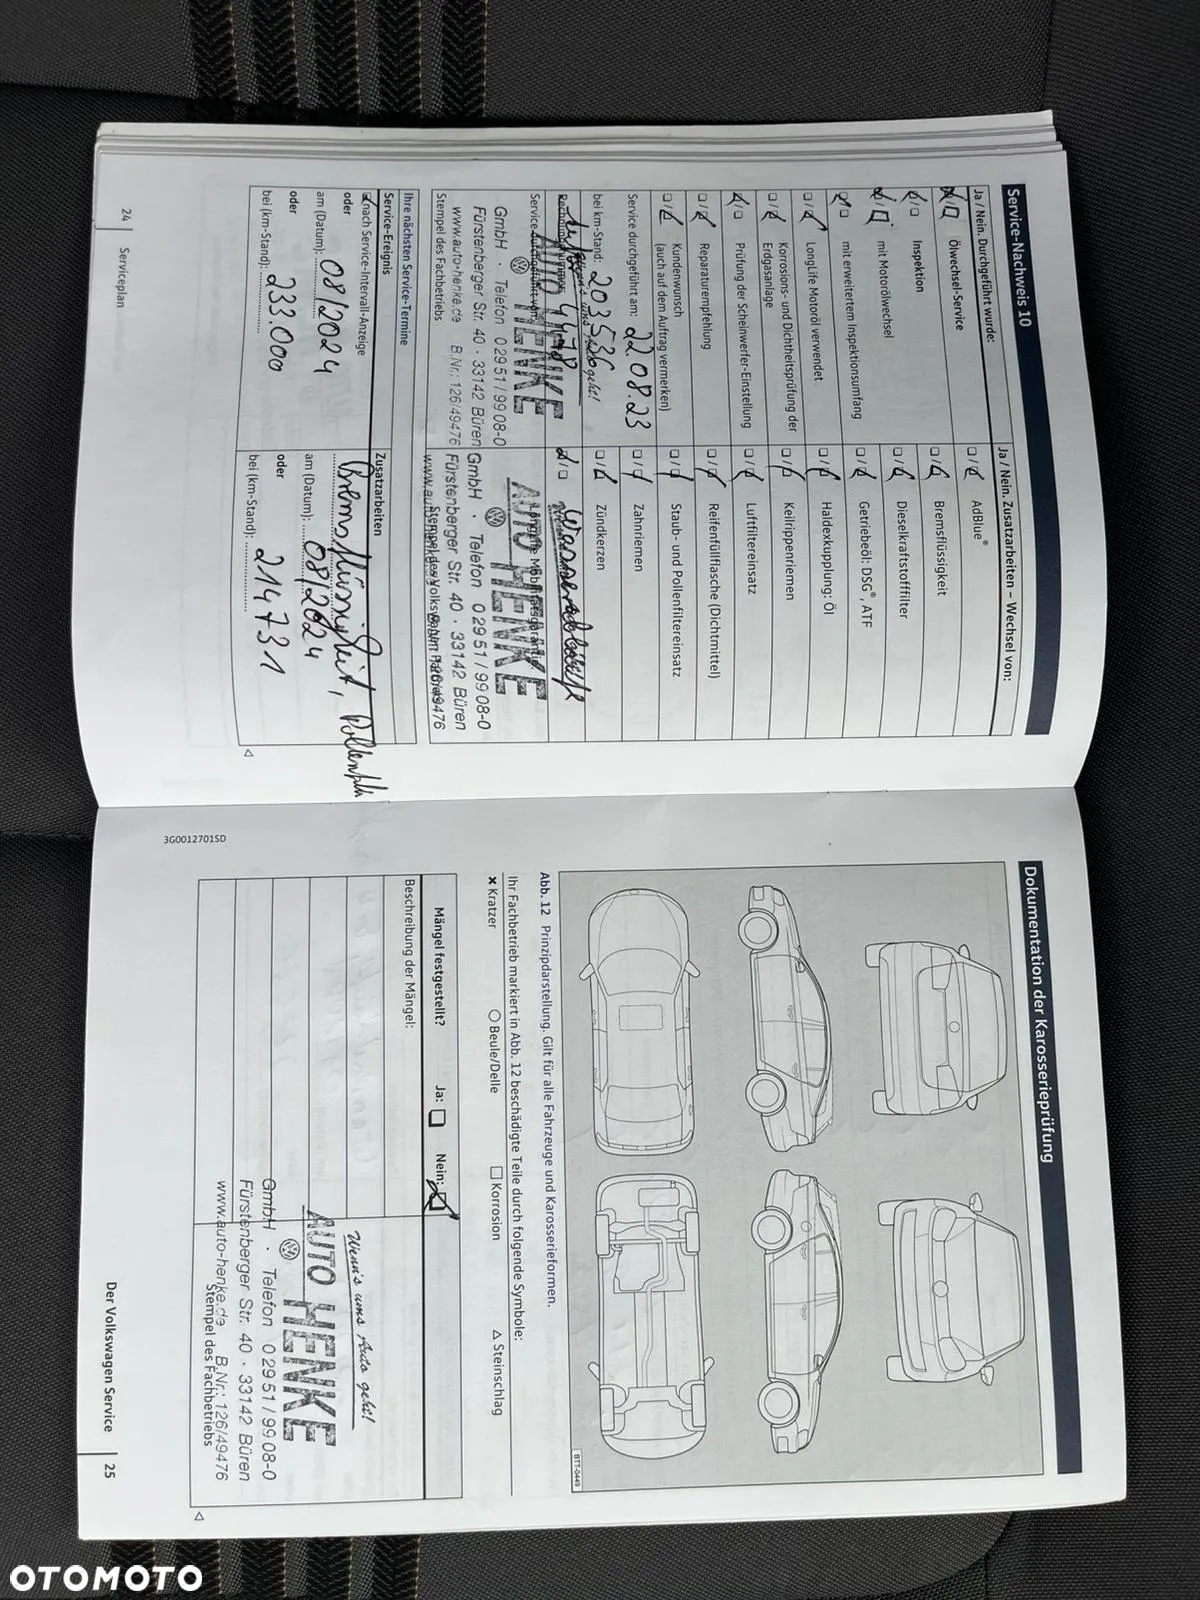 Service-Nachweis 10
Ja / Nein. Durchgeführt wurde:
Ölwechsel-Service
Inspektion
mit Motorölwechsel
mit erweitertem Inspektionsumfang
LongLife Motoröl verwendet
Korrosions- und Dichtheitsprüfung der
Erdgasanlage
Prüfung der Scheinwerfer-Einstellung
Reparaturempfehlung
Kundenwunsch
(auch auf dem Auftrag vermerken)
Service durchgeführt am: 22.08.23
bei km-Stand: 203536
Rechnungsnummer: 4478
Service durchgeführt von:
AUTO HENKE
GmbH · Telefon 0 29 51 / 99 08-0
Fürstenberger Str. 40 · 33142 Büren
www.auto-henke.de B.Nr.: 126/49476
Stempel des Fachbetriebs
Ja / Nein. Zusatzarbeiten – Wechsel von:
AdBlue®
Bremsflüssigkeit
Dieselkraftstofffilter
Getriebeöl: DSG®, ATF
Haldexkupplung: Öl
Keilrippenriemen
Luftfiltereinsatz
Reifenfüllflasche (Dichtmittel)
Staub- und Pollenfiltereinsatz
Zahnriemen
Zündkerzen
AUTO HENKE
GmbH · Telefon 0 29 51 / 99 08-0
Fürstenberger Str. 40 · 33142 Büren
www.auto-henke.de B.Nr.: 126/49476
Stempel des Volkswagen Partners
Ihre nächsten Service-Termine
Service-Ereignis
nach Service-Intervall-Anzeige
oder
am (Datum): 08/2024
oder
bei (km-Stand): 233.000
Zusatzarbeiten
Bremsflüssigkeit,
am (Datum): 08/2024
oder
bei (km-Stand): 214731
24 Serviceplan
Dokumentation der Karosserieprüfung
BTT-0449
Abb. 12 Prinzipdarstellung. Gilt für alle Fahrzeuge und Karosserieformen.
Ihr Fachbetrieb markiert in Abb. 12 beschädigte Teile durch folgende Symbole:
× Kratzer ○ Beule/Delle □ Korrosion △ Steinschlag
Mängel festgestellt? Ja: Nein:
Beschreibung der Mängel:
Wenn's ums Auto geht!
AUTO HENKE
GmbH · Telefon 0 29 51 / 99 08-0
Fürstenberger Str. 40 · 33142 Büren
www.auto-henke.de B.Nr.: 126/49476
Stempel des Fachbetriebs
3G0012701SD
Der Volkswagen Service 25
OTOMOTO